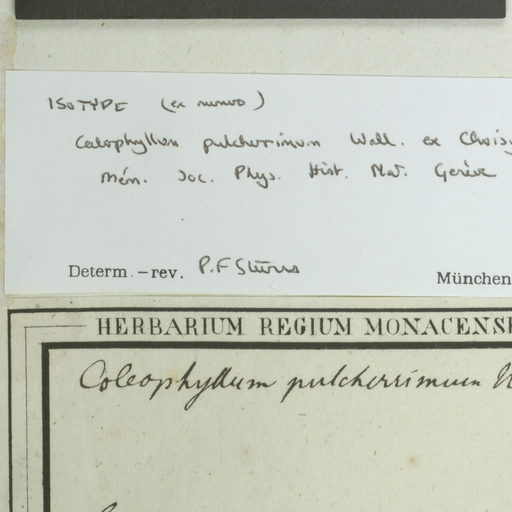 ISOTYPE (ex numero)
Calophyllum pulcherrimum Wall. ex Choisy
Mém. Soc. Phys. Hist. Nat. Genève
Determ. – rev. P.F Stevens
München
HERBARIUM REGIUM MONACENSE
Coleophyllum pulcherrimum W